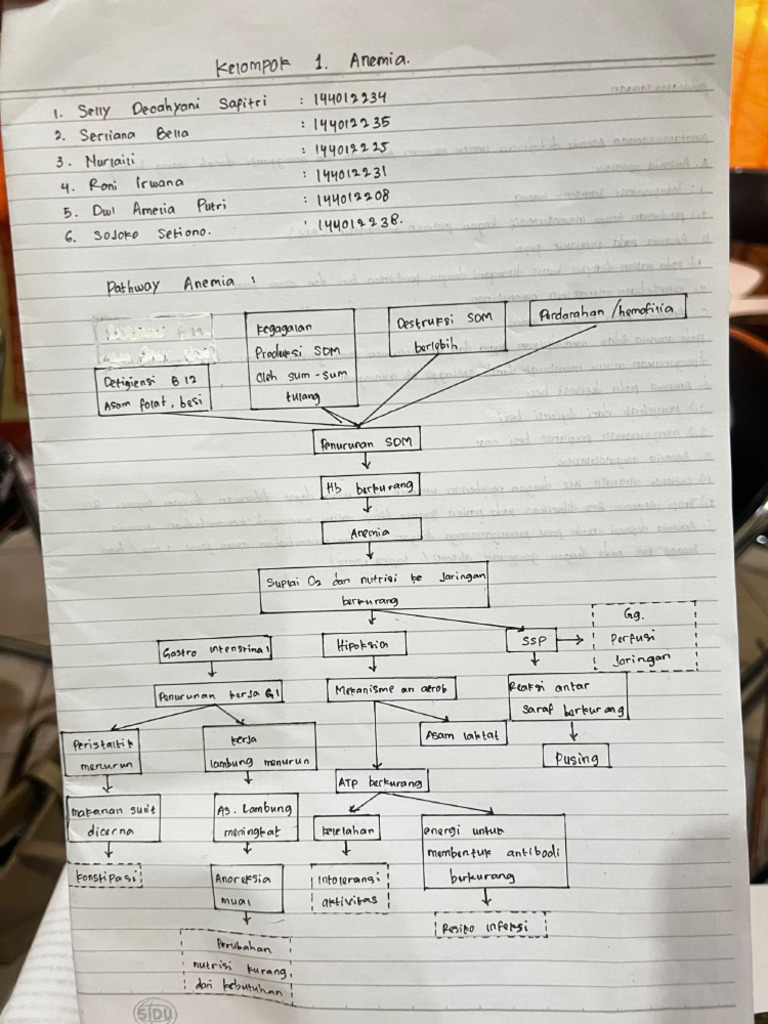 Kelompok 1. Anemia.
1. Selly Decahyani Sapitri : 144012234
2. Serliana Bella : 144012235
3. Nurlaili : 144012225
4. Roni Irwana : 144012231
5. Dwi Amelia Putri : 144012208
6. Sojoko Setiono. : 144012238.
Pathway Anemia :
Defigiensi B12
Asam folat, besi
Kegagalan
Produksi SDM
Oleh sum-sum
tulang
Destruksi SDM
berlebih
Perdarahan /hemofilia
Penurunan SDM
Hb berkurang
Anemia
Suplai O2 dan nutrisi ke Jaringan
berkurang
Gastro intenstinal
Hipoksia
SSP
Gg.
Perfusi
Jaringan
Penurunan kerja GI
Mekanisme an aerob
Reaksi antar
saraf berkurang
Peristaltik
menurun
Kerja
lambung menurun
Asam laktat
Pusing
ATP berkurang
makanan sulit
dicerna
As. Lambung
meningkat
kelelahan
energi untuk
membentuk antibodi
berkurang
Konstipasi
Anoreksia
mual
Intoleransi
aktivitas
Resiko infeksi
Perubahan
nutrisi kurang
dari kebutuhan
SIDU